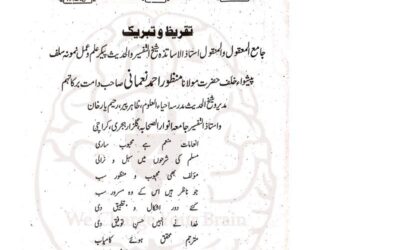 تقریظ و تبریک
جامع المعقول والمنقول استاذ الاساتذہ شیخ التفسیر والحدیث پیکر علم وعمل نمونہ سلف
پیشوائے خلف حضرت مولانا منظور احمد نعمانی صاحب دامت برکاتہم
مدیر و شیخ الحدیث مدرسہ احیاء العلوم، ظاہر پیر، رحیم یار خان
واستاذ التفسیر جامعہ انوار الصحابہ گلزار ہجری، کراچی
انعامات منعم ہے محبوب ساری
مسلم کی شرحوں میں سبل و زلالی
مؤلف بھی محبوب و منظور سب
جو ناظر ہیں اس کے وہ مسرور سب
کئے دور اشکال و تطبیق دی
خدا نے انہیں حسن توفیق دی
مترجم محقق ہوئے کامیاب
We Brain